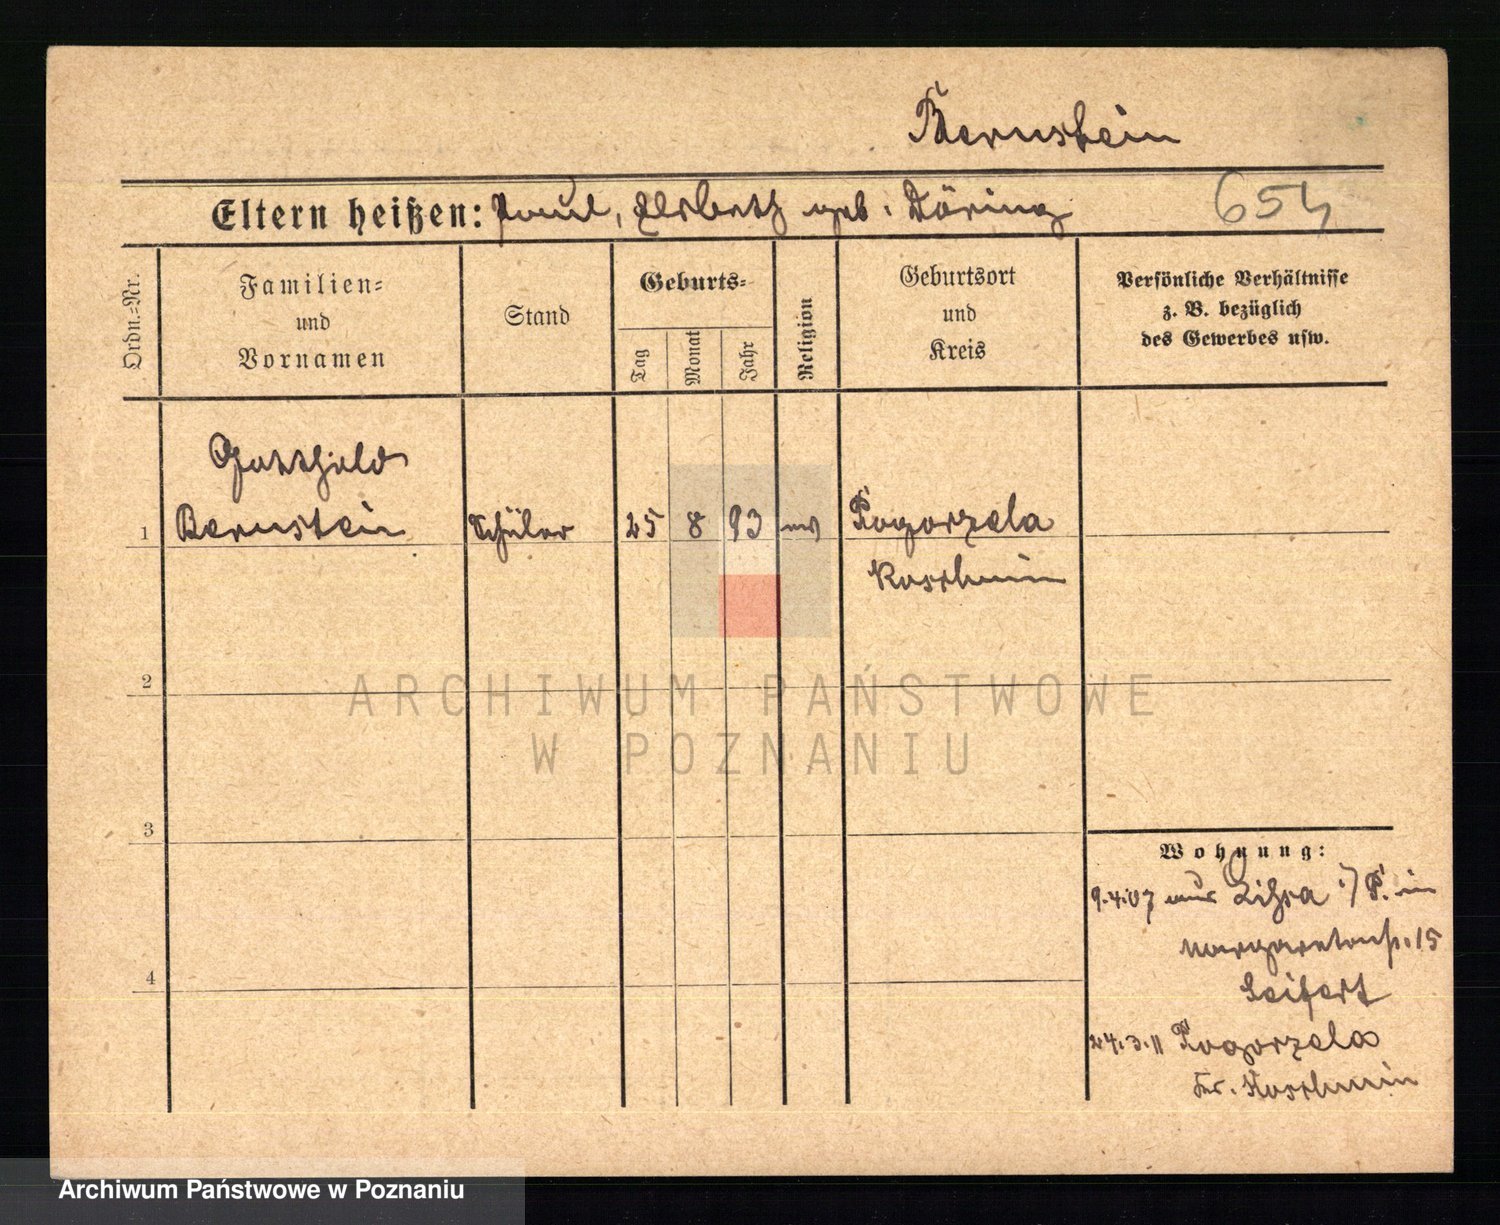 Bernstein
Eltern heißen: Paul, Elsbeth geb. Döring 654
Ordn.=Nr.
Familien=
und
Vornamen
Stand
Geburts=
Tag
Monat
Jahr
Religion
Geburtsort
und
Kreis
Persönliche Verhältnisse
z. B. bezüglich
des Gewerbes usw.
Gotthold
1 Bernstein Schüler 25 8 93 ev Pogorzela
Koschmin
2
3
4
Wohnung:
9.4.07 aus Lissa i/P. in
Margaretenstr. 15
Seifert
24.3.11 Pogorzela
Kr. Koschmin
ARCHIWUM PAŃSTWOWE
W POZNANIU
Archiwum Państwowe w Poznaniu